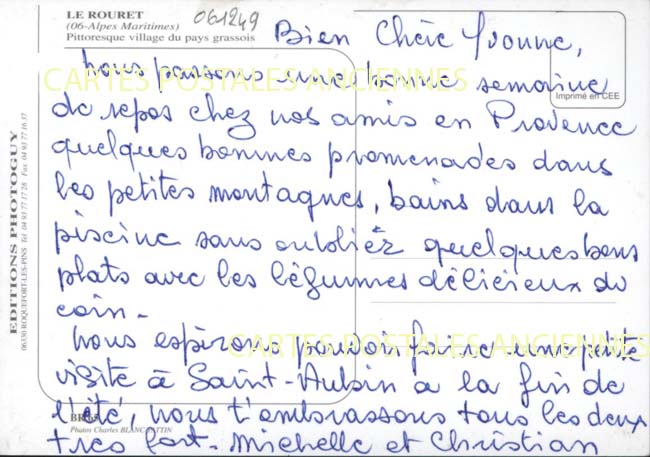 LE ROURET
(06-Alpes Maritimes)
Pittoresque village du pays grassois
061249
Bien Chère Yvonne,
Nous passons une bonne semaine
de repos chez nos amis en Provence
quelques bonnes promenades dans
les petites montagnes, bains dans la
piscine sans oublier quelques bons
plats avec les légumes délicieux du
coin.
Nous espérons pouvoir faire une petite
visite à Saint-Aubin à la fin de
l'été, nous t'embrassons tous les deux
très fort. Michelle et Christian
Imprimé en CEE
EDITIONS PHOTOGUY
06330 ROQUEFORT-LES-PINS Tel 04 93 77 17 28 Fax 04 93 77 16 37
Photos Charles
CARTES POSTALES ANCIENNES
CARTES POSTALES ANCIENNES